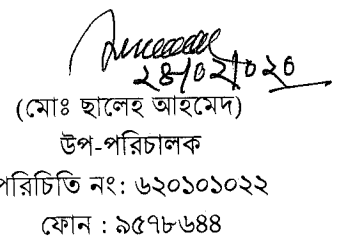 ২৪/০২/০২০
(মোঃ ছালেহ আহমেদ)
উপ-পরিচালক
পরিচিতি নং: ৬২০১০১০২২
ফোন : ৯৫৭৮৬৪৪